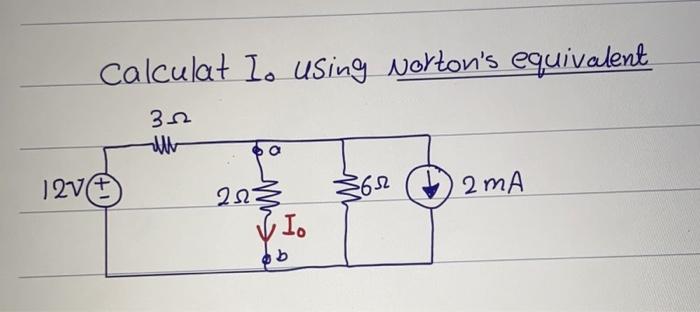 Calculat I₀ using Norton's equivalent
3Ω
a
12V + - 2Ω 6Ω 2mA
I₀
b